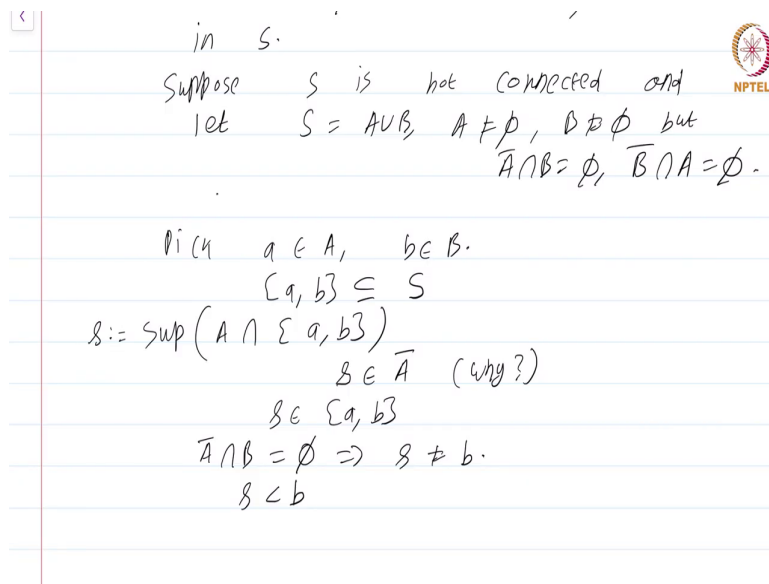 in S.
NPTEL
Suppose S is not connected and
let S = A∪B, A ≠ ∅, B ≠ ∅ but
A̅∩B = ∅, B̅∩A = ∅.
Pick a ∈ A, b ∈ B.
[a, b] ⊆ S
s := sup(A ∩ [a, b])
s ∈ A̅ (why?)
s ∈ [a, b]
A̅∩B = ∅ => s ≠ b.
s < b